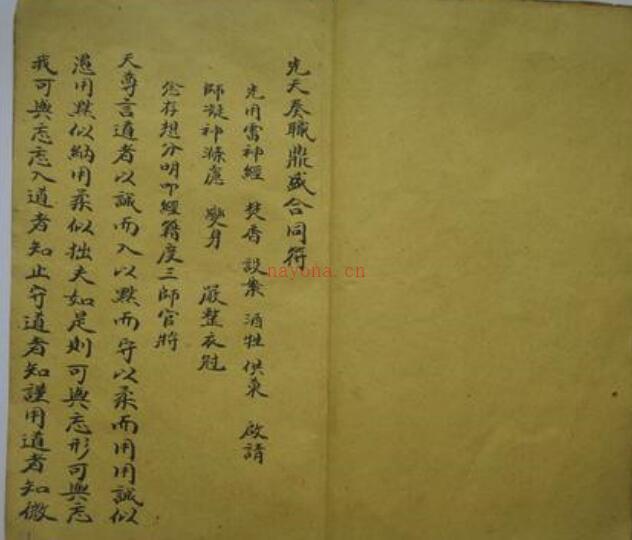 先天奏職鼎盛合同符
先用雷神經 焚香 設案 酒牲供菓 啟請
師凝神滌慮 變身 嚴整衣冠
念存想分明叩經籍度三師官將
天尊言道者以誠而入以默而守以柔而用用誠似
愚用默似納用柔似拙夫如是則可與忘形可與忘
我可與忘忘入道者知止守道者知謹用道者知微
nayona.cn